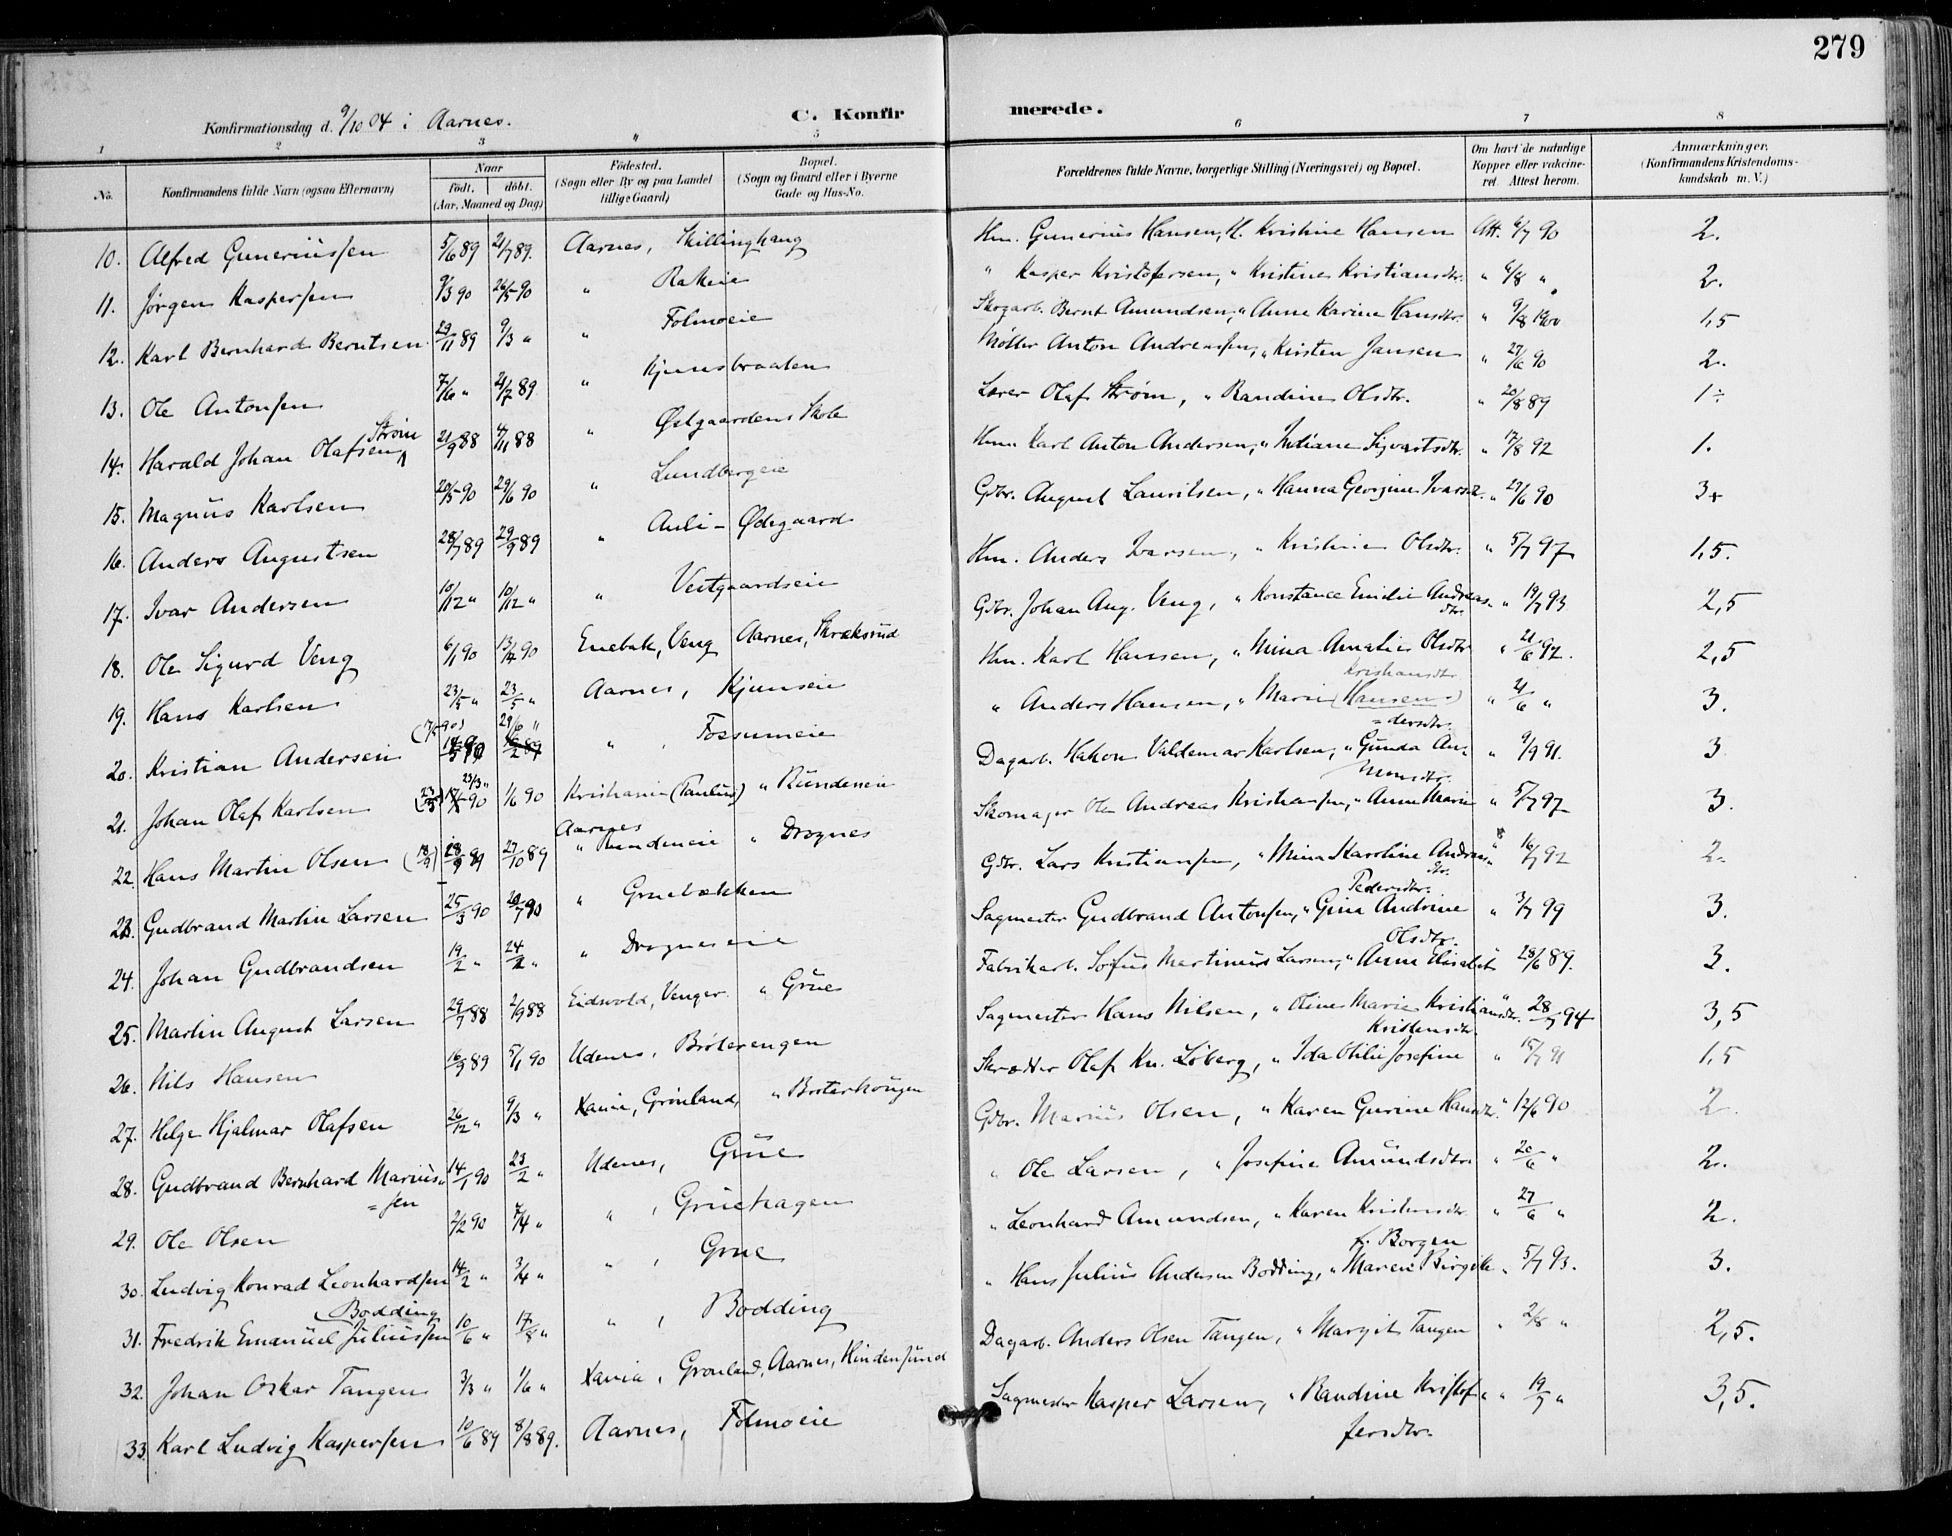 279
Konfirmationsdag d. 9/10 04 i Aarnes. C. Konfirmerede.
1 2 3 4 5 6 7 8
No. Konfirmandens fulde Navn (ogsaa Efternavn) Naar födt. döbt. (Aar, Maaned og Dag) Födested. (Sogn eller By og paa Landet tillige Gaard) Bopæl. (Sogn og Gaard eller i Byerne Gade og Hus-No. Forældrenes fulde Navne, borgerlige Stilling (Næringsvei) og Bopæl. Om havt de naturlige Kopper eller vakcineret. Attest herom. Anmærkninger. (Konfirmandens Kristendomskundskab m. V.)
10. Alfred Guneriussen 5/6 89 21/7 89. Aarnes, Skillinghaug Hm. Gunerius Hansen, H. Kristine Hansen Att. 6/7 90 2.
11. Jørgen Kaspersen 9/3 90 26/5 90 " Rakeie " Kasper Kristofersen, " Kristine Kristiansdtr. " 6/8 " 2.
12. Karl Bernhard Berntsen 29/11 89 9/3 " " Folmoeie Skogarb. Bernt Amundsen, " Anne Karine Hansdtr. " 9/8 1900 1,5
13. Ole Antonsen 7/6 " 21/7 89 " Kjunsbraaten Møller Anton Andreassen, " Kirsten Jansen " 27/6 90 2.
14. Harald Johan Olafsen Strøm 21/9 88 4/11 88 " Østgaardens Skole Lærer Olaf Strøm, " Randine Olsdtr. " 20/8 89 1÷
15. Magnus Karlsen 20/5 90 29/6 90 " Lundbergeie Hm. Karl Anton Andersen, " Indiane Sigvartsdtr. " 17/8 92 1.
16. Anders Augustsen 28/7 89 29/9 89 " Auli - Ødegaard Gbr. August Lauritsen, " Hanna Georgine Ivarsd. " 27/6 90 3+
17. Ivar Andersen 10/12 " 10/12 " " Vestgaardseie Hm. Anders Ivarsen, " Kristine Olsdtr. " 5/7 97 1,5.
18. Ole Sigurd Veng 6/1 90 13/4 90 Enebak, Veng Aarnes, Skræksrud Gbr. Johan Aug. Veng, " Konstance Emilie Andreasdtr. " 19/7 93 2,5
19. Hans Karlsen 23/5 " 23/5 " Aarnes, Kjunseie Hm. Karl Hansen, " Mina Amalie Olsdtr " 21/6 92. 2,5
20. Kristian Andersen 29/6 " " , Fossumeie " Anders Hansen, " Marie (Hansen) Kristiansdtr " 21/6 " 3.
21. Johan Olaf Karlsen 90 1/6 90 Kristiania (Paulus) " Rundeneie Dagarb. Hakon Valdemar Karlsen, " Gunda Andersdtr. " 9/9 91. 3
22. Hans Martin Olsen (18/9) 28/9 89 27/10 89 Aarnes " Rundeneie " Drognes Skomager Ole Andreas Kristiansen, " Anne Marie " 5/7 97 3.
23. Gudbrand Martin Larsen 25/3 90 20/7 90 " Gruebækken Gbr. Lars Kristiansen, " Mina Karoline Andreasdtr. " 16/7 92 2.
24. Johan Gudbrandsen 19/2 " 24/2 " " Drogneseie Sagmester Gudbrand Antonsen, " Gina Andrine Pedersdtr. " 3/7 99 3.
25. Martin August Larsen 29/7 88 2/9 88 Eidsvold, Venger " Grue Fabrikarb. Sofus Martinius Larsen, " Anne Elisabet Olsdtr. 28/6 89. 3.
26. Nils Hansen 16/9 89 5/1 90 Udenes, Brøterengen Sagmester Hans Nilsen, " Oline Marie Kristiansdtr. " 28/7 94 3,5
27. Helge Hjalmar Olafsen 26/12 " 9/3 " Xania, Grønland, " Broterhougen Skrædder Olaf Kr. Løberg, " Ida Otilie Josefine Kristensdtr. " 15/7 91 1,5
28. Gudbrand Bernhard Mariussen 14/1 90 23/2 " Udenes, Grue Gbr. Marius Olsen, " Karen Gurine Hansdtr. " 12/6 90 2.
29. Ole Olsen 2/2 90 7/4 " " , Gruehagen " Ole Larsen, " Josefine Amundsdtr " 20/6 " 2.
30. Ludvig Konrad Leonhardsen 14/2 " 3/4 " " , Grue " Leonhard Amundsen, " Karen Kristensdtr. " 27/6 " 2.
31. Fredrik Emanuel Juliussen Bodding 10/6 " 17/8 " " , Bodding " Hans Julius Andersen Bodding, " Maren Birgitte f. Borgen " 5/7 93. 3.
32. Johan Oskar Tangen 3/3 " 1/6 " Xania, Grønland, Aarnes, Hindensund Dagarb. Anders Olsen Tangen, " Margit Tangen " 2/8 " 2,5.
33. Karl Ludvig Kaspersen 10/6 89 8/8 89. Aarnes, Folmoeie Sagmester Kasper Larsen, " Randine Kristofersdtr. " 19/7 " 3,5.